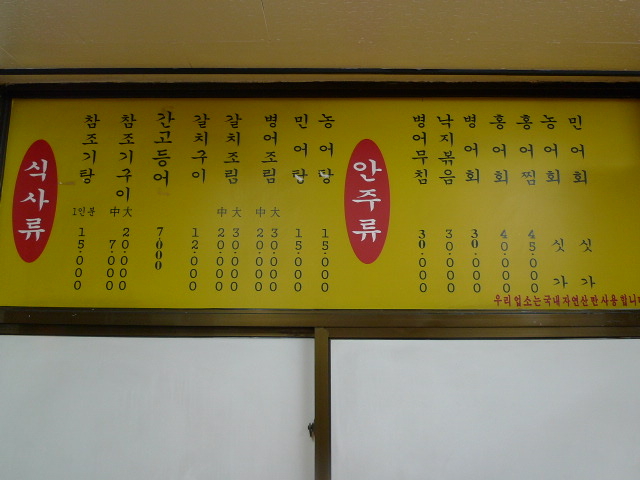 식사류
참조기탕 1인분 15.000
참조기구이 中 大 7.000 20.000
간고등어 7.000
갈치구이 12.000
갈치조림 中 大 20.000 30.000
병어조림 中 大 20.000 30.000
민어탕 15.000
농어탕 15.000
안주류
병어무침 30.000
낙지볶음 30.000
병어회 30.000
홍어회 40.000
홍어찜 45.000
농어회 싯가
민어회 싯가
우리 업소는 국내 자연산 만 사용 합니